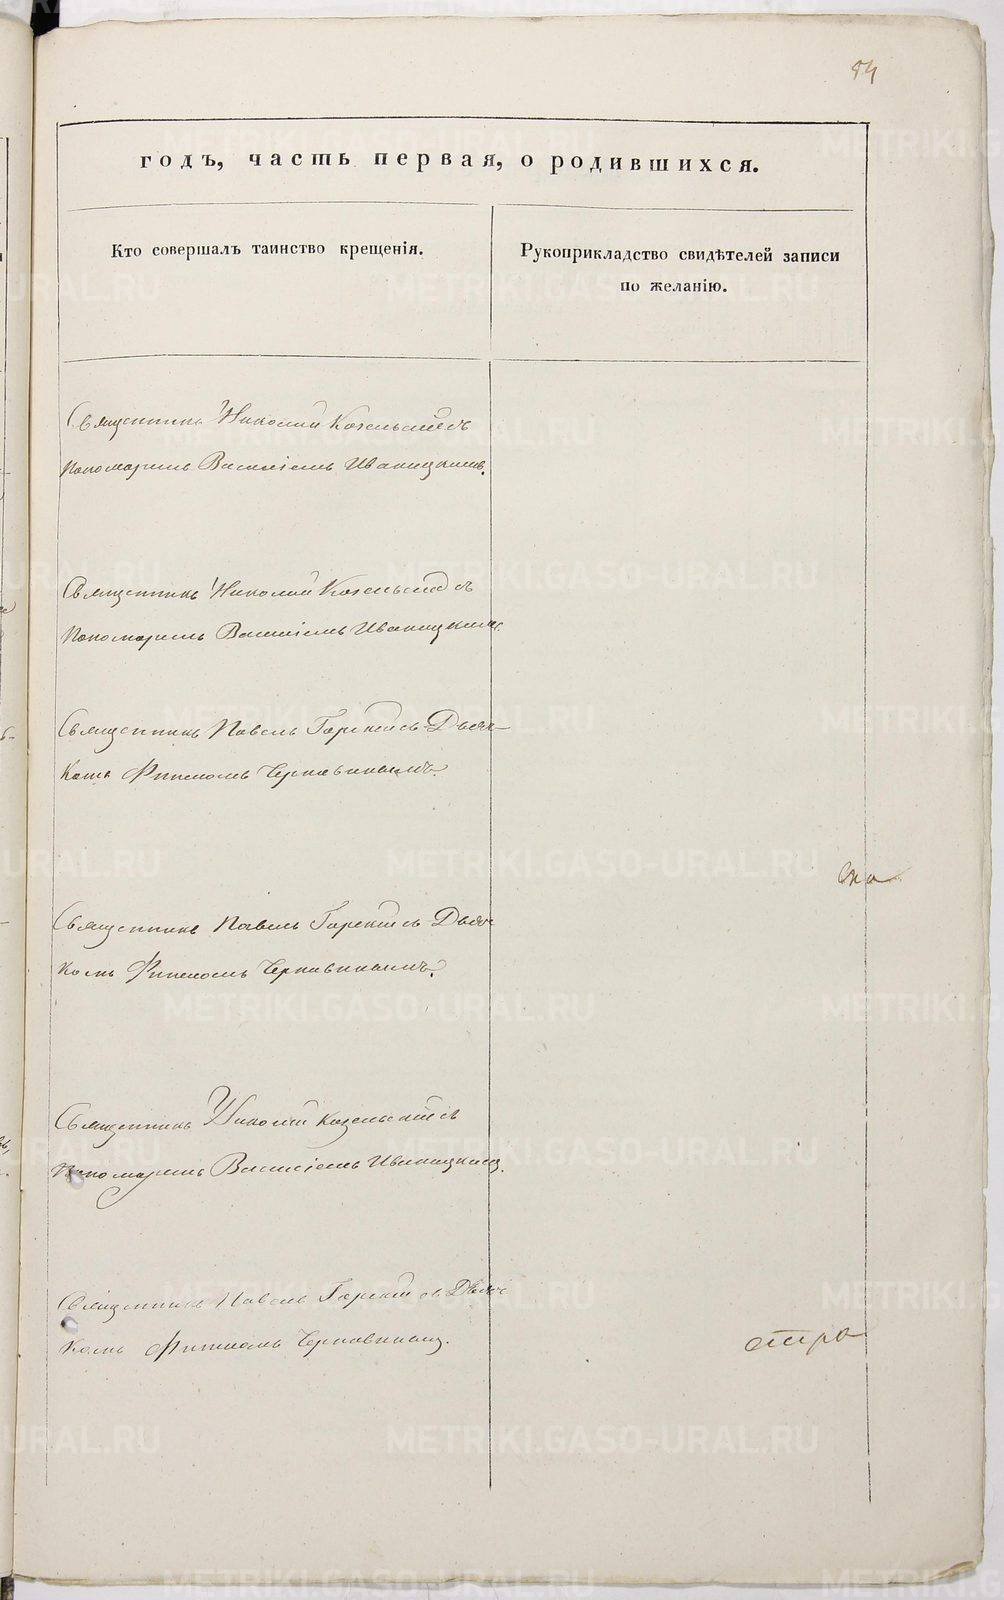 84
годъ, часть первая, о родившихся.
Кто совершалъ таинство крещенія.
Рукоприкладство свидѣтелей записи
по желанію.
Священникъ Николай Козельскій съ
пономаремъ Василіемъ Иваницкимъ.
Священникъ Николай Козельскій съ
пономаремъ Василіемъ Иваницкимъ.
Священникъ Павелъ Горскій съ Дьяч-
комъ Филипомъ Чернавинымъ.
Священникъ Павелъ Горскій съ Дьяч
комъ Филипомъ Чернавинымъ.
Священникъ Николай Козельскій съ
Пономаремъ Василіемъ Иваницкимъ.
Священникъ Павелъ Горскій съ Дьяч
комъ Филипомъ Чернавинымъ.
METRIKI.GASO-URAL.RU